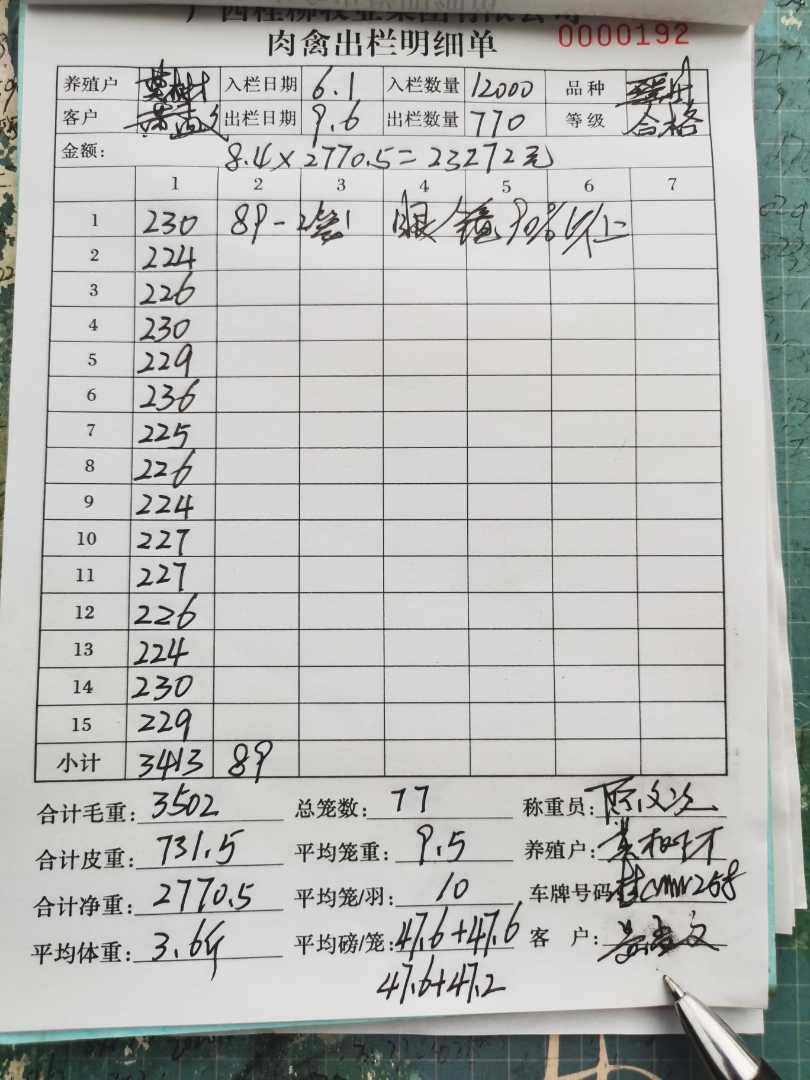 肉禽出栏明细单 0000192
养殖户 黄树才 入栏日期 6.1 入栏数量 12000 品种
客户 出栏日期 9.6 出栏数量 770 等级 合格
金额: 8.4×2770.5=23272元
1 2 3 4 5 6 7
1 230 89-2笼 眼镜90%以上
2 224
3 226
4 230
5 229
6 236
7 225
8 226
9 224
10 227
11 227
12 226
13 224
14 230
15 229
小计 3413 89
合计毛重: 3502 总笼数: 77 称重员:
合计皮重: 731.5 平均笼重: 9.5 养殖户: 黄树才
合计净重: 2770.5 平均笼/羽: 10 车牌号码
平均体重: 3.6斤 平均磅/笼: 47.6+47.6 客 户:
47.6+47.2